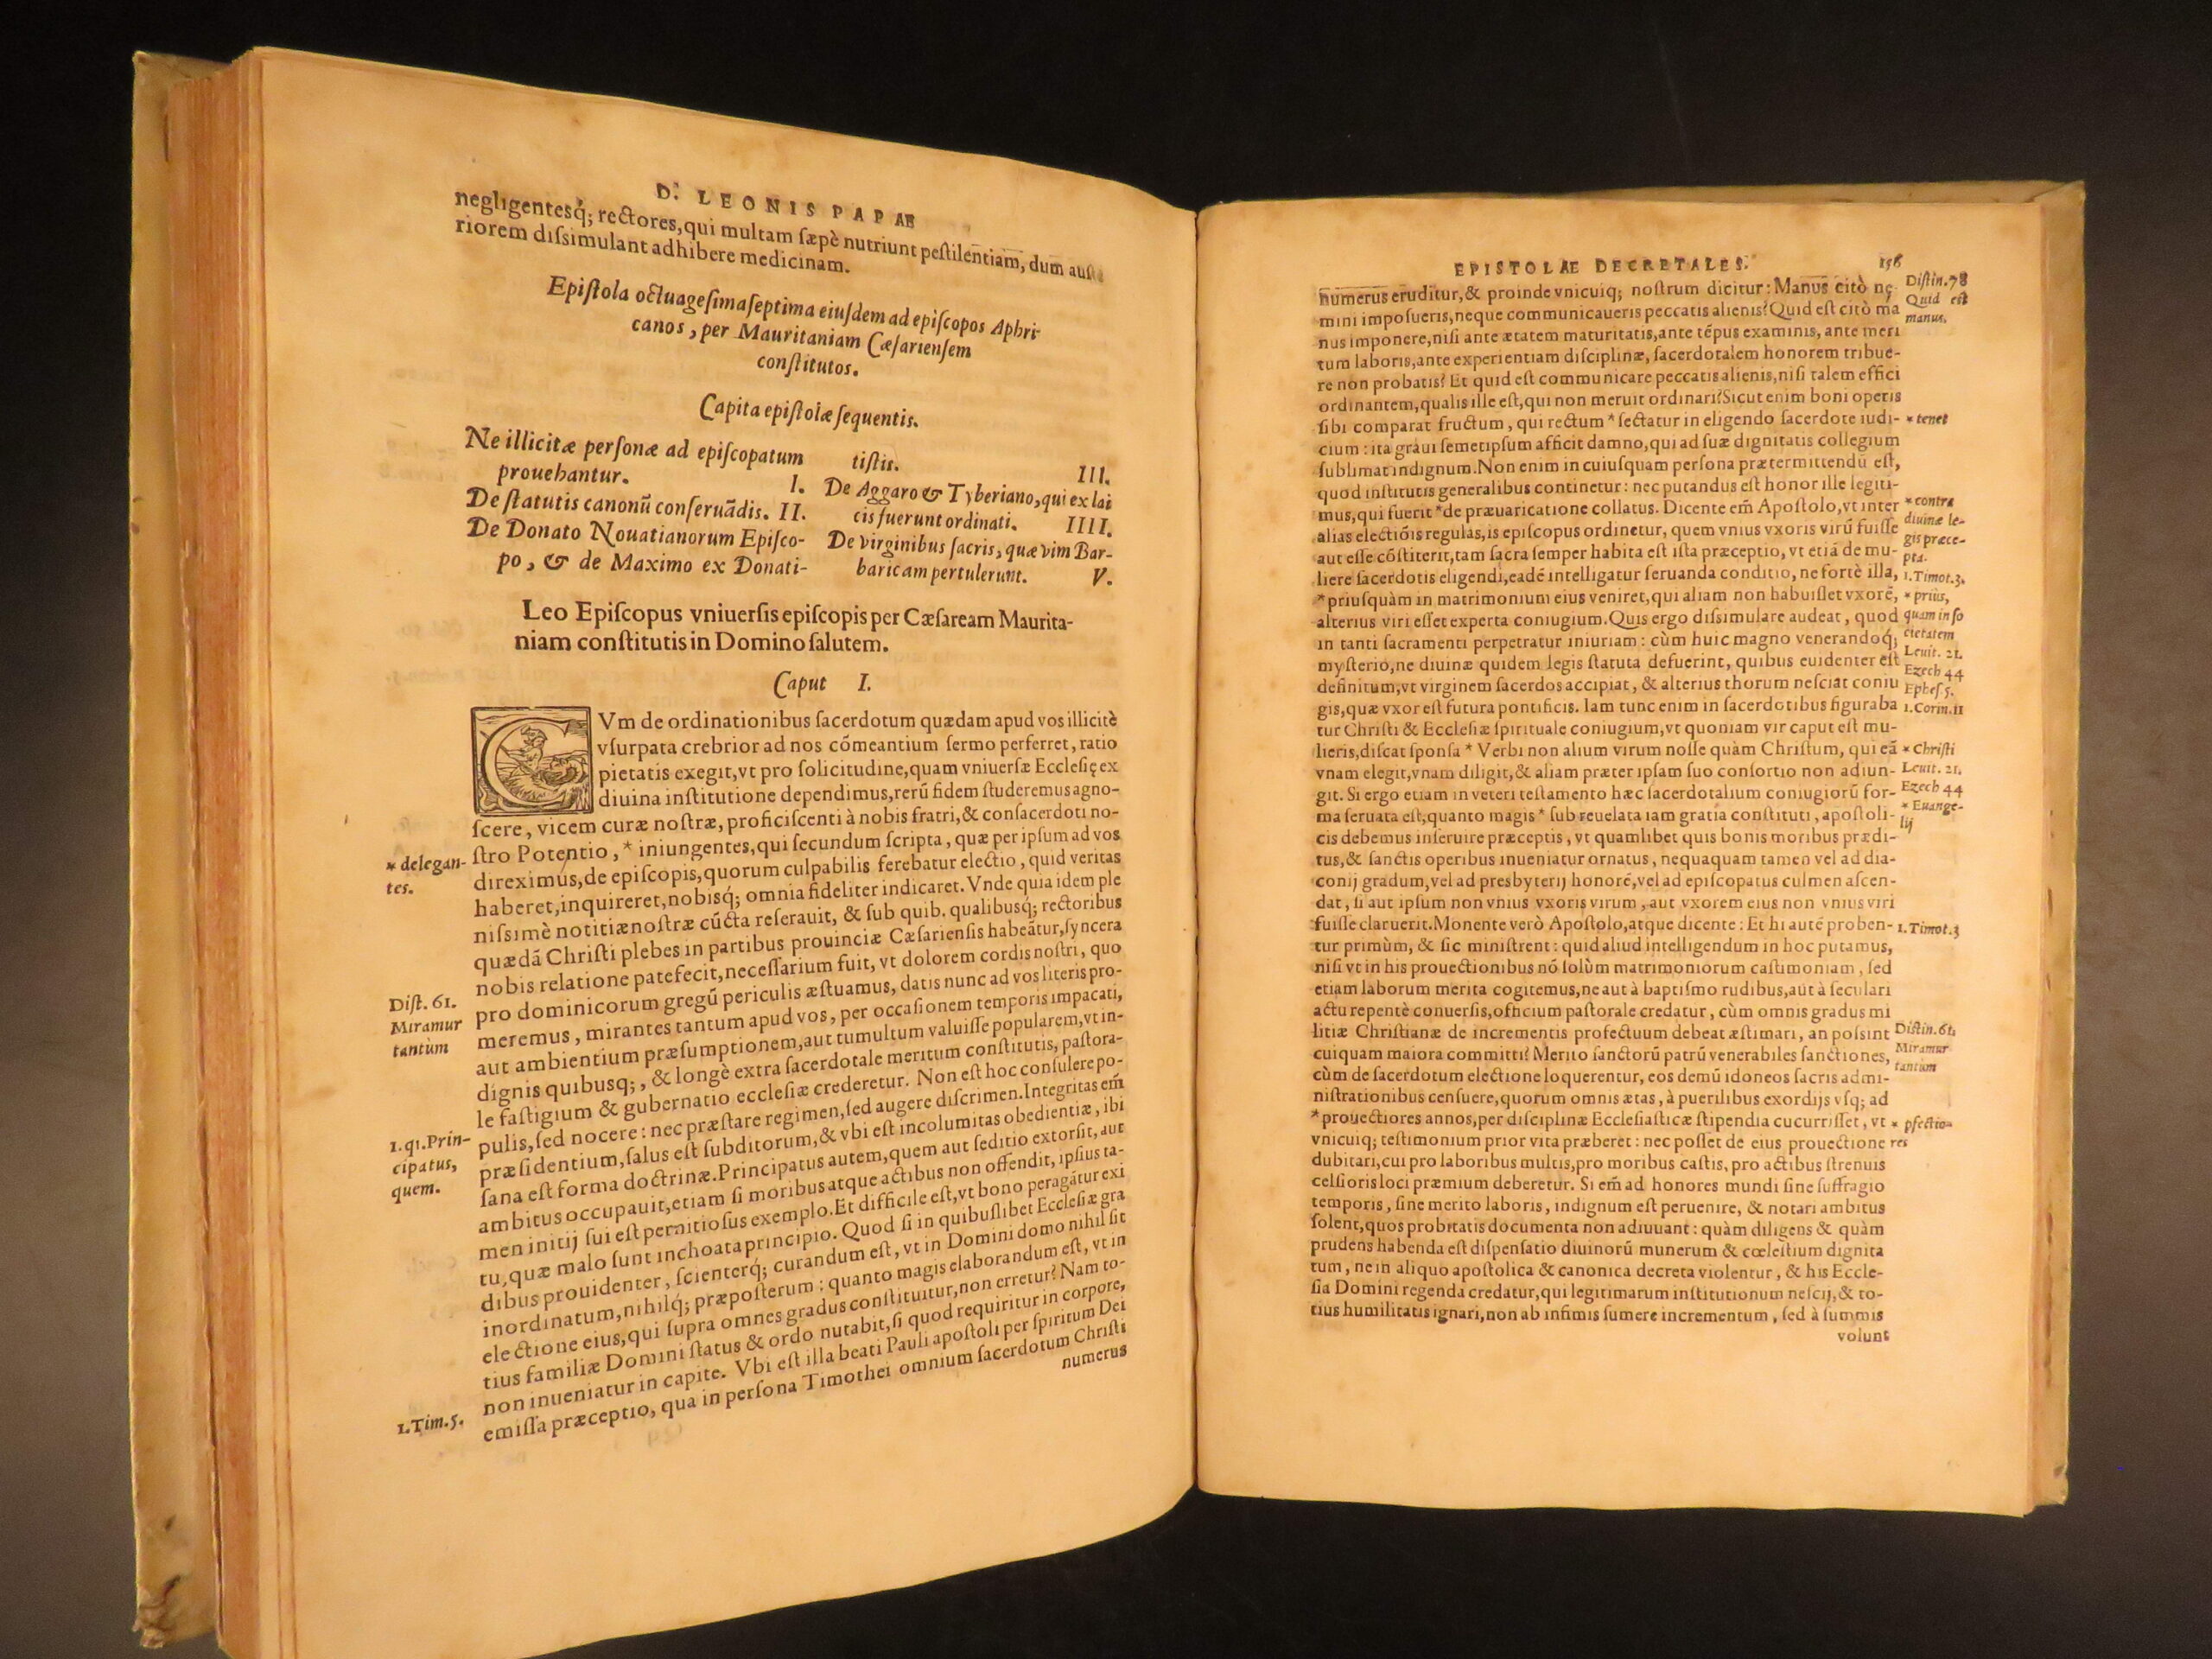 D. LEONIS PAPAE
negligentesq́; rectores, qui multam sæpè nutriunt pestilentiam, dum auste
riorem dissimulant adhibere medicinam.
Epistola octuagesimaseptima eiusdem ad episcopos Aphri-
canos, per Mauritaniam Cæsariensem
constitutos.
Capita epistolæ sequentis.
Ne illicitæ personæ ad episcopatum
prouehantur. I.
De statutis canonũ conseruãdis. II.
De Donato Nouatianorum Episco-
po, & de Maximo ex Donati-
tistis. III.
De Aggaro & Tyberiano, qui ex lai
cis fuerunt ordinati. IIII.
De virginibus sacris, quæ vim Bar-
baricam pertulerunt. V.
Leo Episcopus vniuersis episcopis per Cæsaream Maurita-
niam constitutis in Domino salutem.
Caput I.
CVm de ordinationibus sacerdotum quædam apud vos illicitè
vsurpata crebrior ad nos cómeantium sermo perferret, ratio
pietatis exegit, vt pro solicitudine, quam vniuersæ Ecclesię ex
diuina institutione dependimus, rerũ fidem studeremus agno-
scere, vicem curæ nostræ, proficiscenti à nobis fratri, & consacerdoti no-
stro Potentio, * iniungentes, qui secundum scripta, quæ per ipsum ad vos
direximus, de episcopis, quorum culpabilis ferebatur electio, quid veritas
haberet, inquireret, nobisq́; omnia fideliter indicaret. Vnde quia idem ple
nissimè notitiæ nostræ cũcta reserauit, & sub quib. qualibusq́; rectoribus
quædã Christi plebes in partibus prouinciæ Cæsariensis habeãtur, syncera
nobis relatione patefecit, necessarium fuit, vt dolorem cordis nostri, quo
pro dominicorum gregũ periculis æstuamus, datis nunc ad vos literis pro-
meremus, mirantes tantum apud vos, per occasionem temporis impacati,
aut ambientium præsumptionem, aut tumultum valuisse popularem, vt in-
dignis quibusq;, & longè extra sacerdotale meritum constitutis, pastora-
le fastigium & gubernatio ecclesiæ crederetur. Non est hoc consulere po-
pulis, sed nocere: nec præstare regimen, sed augere discrimen. Integritas em̃
præsidentium, salus est subditorum, & vbi est incolumitas obedientiæ, ibi
sana est forma doctrinæ. Principatus autem, quem aut seditio extorsit, aut
ambitus occupauit, etiam si moribus atque actibus non offendit, ipsius ta-
men initij sui est pernitiosus exemplo. Et difficile est, vt bono peragátur exi
tu, quæ malo sunt inchoata principio. Quod si in quibuslibet Ecclesiæ gra
dibus prouidenter, scienterq́; curandum est, vt in Domini domo nihil sit
inordinatum, nihilq́; præposterum: quanto magis elaborandum est, vt in
electione eius, qui supra omnes gradus constituitur, non erretur? Nam to-
tius familiæ Domini status & ordo nutabit, si quod requiritur in corpore,
non inueniatur in capite. Vbi est illa beati Pauli apostoli per spiritum Dei
emissa præceptio, qua in persona Timothei omnium sacerdotum Christi
numerus
* delegan-
tes.
Dist. 61.
Miramur
tantùm
1.q1.Prin-
cipatus,
quem.
1.Tim.5.
EPISTOLAE DECRETALES. 156
numerus eruditur, & proinde vnicuiq; nostrum dicitur: Manus citò nę
mini imposueris, neque communicaueris peccatis alienis? Quid est citò ma
nus imponere, nisi ante ætatem maturitatis, ante tépus examinis, ante meri
tum laboris, ante experientiam disciplinæ, sacerdotalem honorem tribue-
re non probatis? Et quid est communicare peccatis alienis, nisi talem effici
ordinantem, qualis ille est, qui non meruit ordinari? Sicut enim boni operis
sibi comparat fructum, qui rectum * sectatur in eligendo sacerdote iudi-
cium: ita graui semetipsum afficit damno, qui ad suæ dignitatis collegium
sublimat indignum. Non enim in cuiusquam persona prætermittendũ est,
quod institutis generalibus continetur: nec putandus est honor ille legiti-
mus, qui fuerit * de præuaricatione collatus. Dicente em̃ Apostolo, vt inter
alias electiõis regulas, is episcopus ordinetur, quem vnius vxoris virũ fuisse
aut esse cõstiterit, tam sacra semper habita est ista præceptio, vt etiã de mu-
liere sacerdotis eligendi, eadé intelligatur seruanda conditio, ne fortè illa,
* priusquàm in matrimonium eius veniret, qui aliam non habuisset vxorẽ,
alterius viri esset experta coniugium. Quis ergo dissimulare audeat, quod
in tanti sacramenti perpetratur iniuriam: cùm huic magno venerandoq́;
mysterio, ne diuinæ quidem legis statuta defuerint, quibus euidenter est
definitum, vt virginem sacerdos accipiat, & alterius thorum nesciat coniu
gis, quæ vxor est futura pontificis. Iam tunc enim in sacerdotibus figuraba
tur Christi & Ecclesiæ spirituale coniugium, vt quoniam vir caput est mu-
lieris, discat sponsa * Verbi non alium virum nosse quàm Christum, qui eã
vnam elegit, vnam diligit, & aliam præter ipsam suo consortio non adiun-
git. Si ergo etiam in veteri testamento hæc sacerdotalium coniugiorũ for-
ma seruata est, quanto magis * sub reuelata iam gratia constituti, apostoli-
cis debemus inseruire præceptis, vt quamlibet quis bonis moribus prædi-
tus, & sanctis operibus inueniatur ornatus, nequaquam tamen vel ad dia-
conij gradum, vel ad presbyterij honoré, vel ad episcopatus culmen ascen-
dat, si aut ipsum non vnius vxoris virum, aut vxorem eius non vnius viri
fuisse claruerit. Monente verò Apostolo, atque dicente: Et hi auté proben-
tur primùm, & sic ministrent: quid aliud intelligendum in hoc putamus,
nisi vt in his prouectionibus nõ solùm matrimoniorum castimoniam, sed
etiam laborum merita cogitemus, ne aut à baptismo rudibus, aut à seculari
actu repentè conuersis, officium pastorale credatur, cùm omnis gradus mi
litiæ Christianæ de incrementis profectuum debeat æstimari, an possint
cuiquam maiora committi? Merito sanctorũ patrũ venerabiles sanctiones,
cùm de sacerdotum electione loquerentur, eos demũ idoneos sacris admi-
nistrationibus censuere, quorum omnis ætas, à puerilibus exordijs vsq; ad
* prouectiores annos, per disciplinæ Ecclesiasticæ stipendia cucurrisset, vt
vnicuiq; testimonium prior vita præberet: nec posset de eius prouectione
dubitari, cui pro laboribus multis, pro moribus castis, pro actibus strenuis
celsioris loci præmium deberetur. Si em̃ ad honores mundi sine suffragio
temporis, sine merito laboris, indignum est peruenire, & notari ambitus
solent, quos probitatis documenta non adiuuant: quàm diligens & quàm
prudens habenda est dispensatio diuinorũ munerum & cœlestium dignita
tum, ne in aliquo apostolica & canonica decreta violentur, & his Eccle-
sia Domini regenda credatur, qui legitimarum institutionum nescij, & to-
tius humilitatis ignari, non ab infimis sumere incrementum, sed à summis
volunt
Distin.78
Quid est
manus.
* tenet
* contra
diuinæ le-
gis præce-
pta.
1.Timot.3.
* priùs,
quam in so
cietatem
Leuit. 21.
Ezech 44
Ephes 5.
1.Corin.11
* Christi
Leuit. 21.
Ezech 44
* Euange-
lij
1.Timot.3
Distin.61.
Miramur
tantum
* pfectio-
res